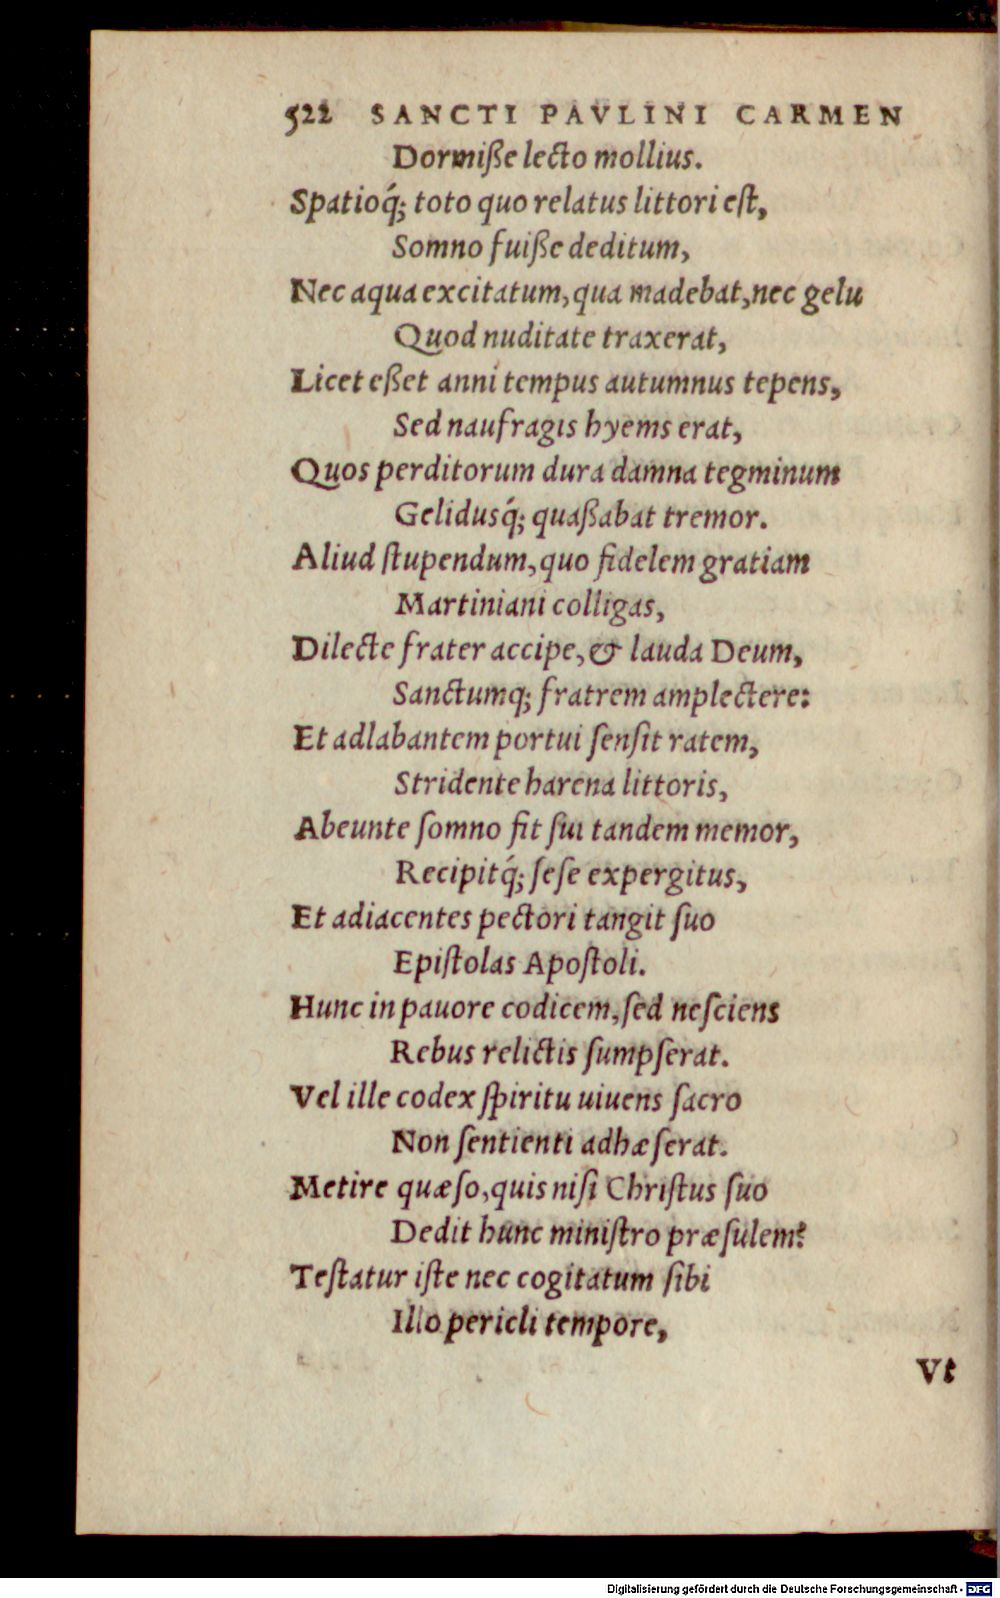 522 SANCTI PAVLINI CARMEN
Dormiße lecto mollius.
Spatioq́; toto quo relatus littori eſt,
Somno fuiße deditum,
Nec aqua excitatum, qua madebat, nec gelu
Quod nuditate traxerat,
Licet eßet anni tempus autumnus tepens,
Sed naufragis hyems erat,
Quos perditorum dura damna tegminum
Gelidusq́; quaßabat tremor.
Aliud ſtupendum, quo fidelem gratiam
Martiniani colligas,
Dilecte frater accipe, & lauda Deum,
Sanctumq; fratrem amplectere:
Et adlabantem portui ſenſit ratem,
Stridente harena littoris,
Abeunte ſomno fit ſui tandem memor,
Recipitq́; ſeſe expergitus,
Et adiacentes pectori tangit ſuo
Epiſtolas Apoſtoli.
Hunc in pauore codicem, ſed neſciens
Rebus relictis ſumpſerat.
Vel ille codex ſpiritu uiuens ſacro
Non ſentienti adhæſerat.
Metire quæſo, quis niſi Chriſtus ſuo
Dedit hunc miniſtro præſulem?
Teſtatur iſte nec cogitatum ſibi
Illo pericli tempore,
Vt
Digitalisierung gefördert durch die Deutsche Forschungsgemeinschaft - DFG